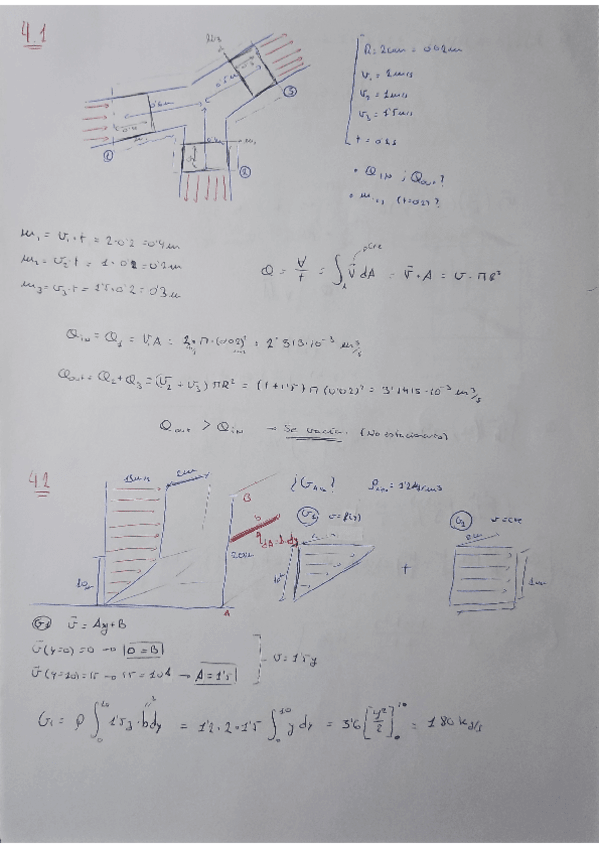 4.1
0'6m
0'5m
①
②
③
R = 2cm = 0'02m
v₁ = 2m/s
v₂ = 1m/s
v₃ = 1'5m/s
t = 0'2s
• Q_IN ; Q_out ?
(t=0'2)?
m₁ = v₁·t = 2·0'2 = 0'4m
m₂ = v₂·t = 1·0'2 = 0'2m
m₃ = v₃·t = 1'5·0'2 = 0'3m
Q = V/t = ∫_A v̄ dA = v̄·A = v·πR²
cte
Q_IN = Q₁ = V₁A = 2·π·(0'02)² = 2'513·10⁻³ m³/s
Q_out = Q₂+Q₃ = (v₂+v₃)πR² = (1+1'5)π(0'02)² = 3'1415·10⁻³ m³/s
Q_out > Q_IN → Se vacía. (No estacionario)
4.2
15m/s
2m
B
b
dA=b·dy
A
10
¿G_AB?
ρ_aire = 1'2kg/m3
G₁ v=f(y)
+
G₂ v=cte
G₁ v̄ = Ay+B
v̄(y=0)=0 → 0=B
v̄(y=10)=15 → 15=10A → A=1'5
v=1'5y
G₁ = ρ∫₀¹⁰ 1'5y·b dy = 1'2·2·1'5 ∫₀¹⁰ y dy = 3'6 [y²/2]₀¹⁰ = 180 kg/s